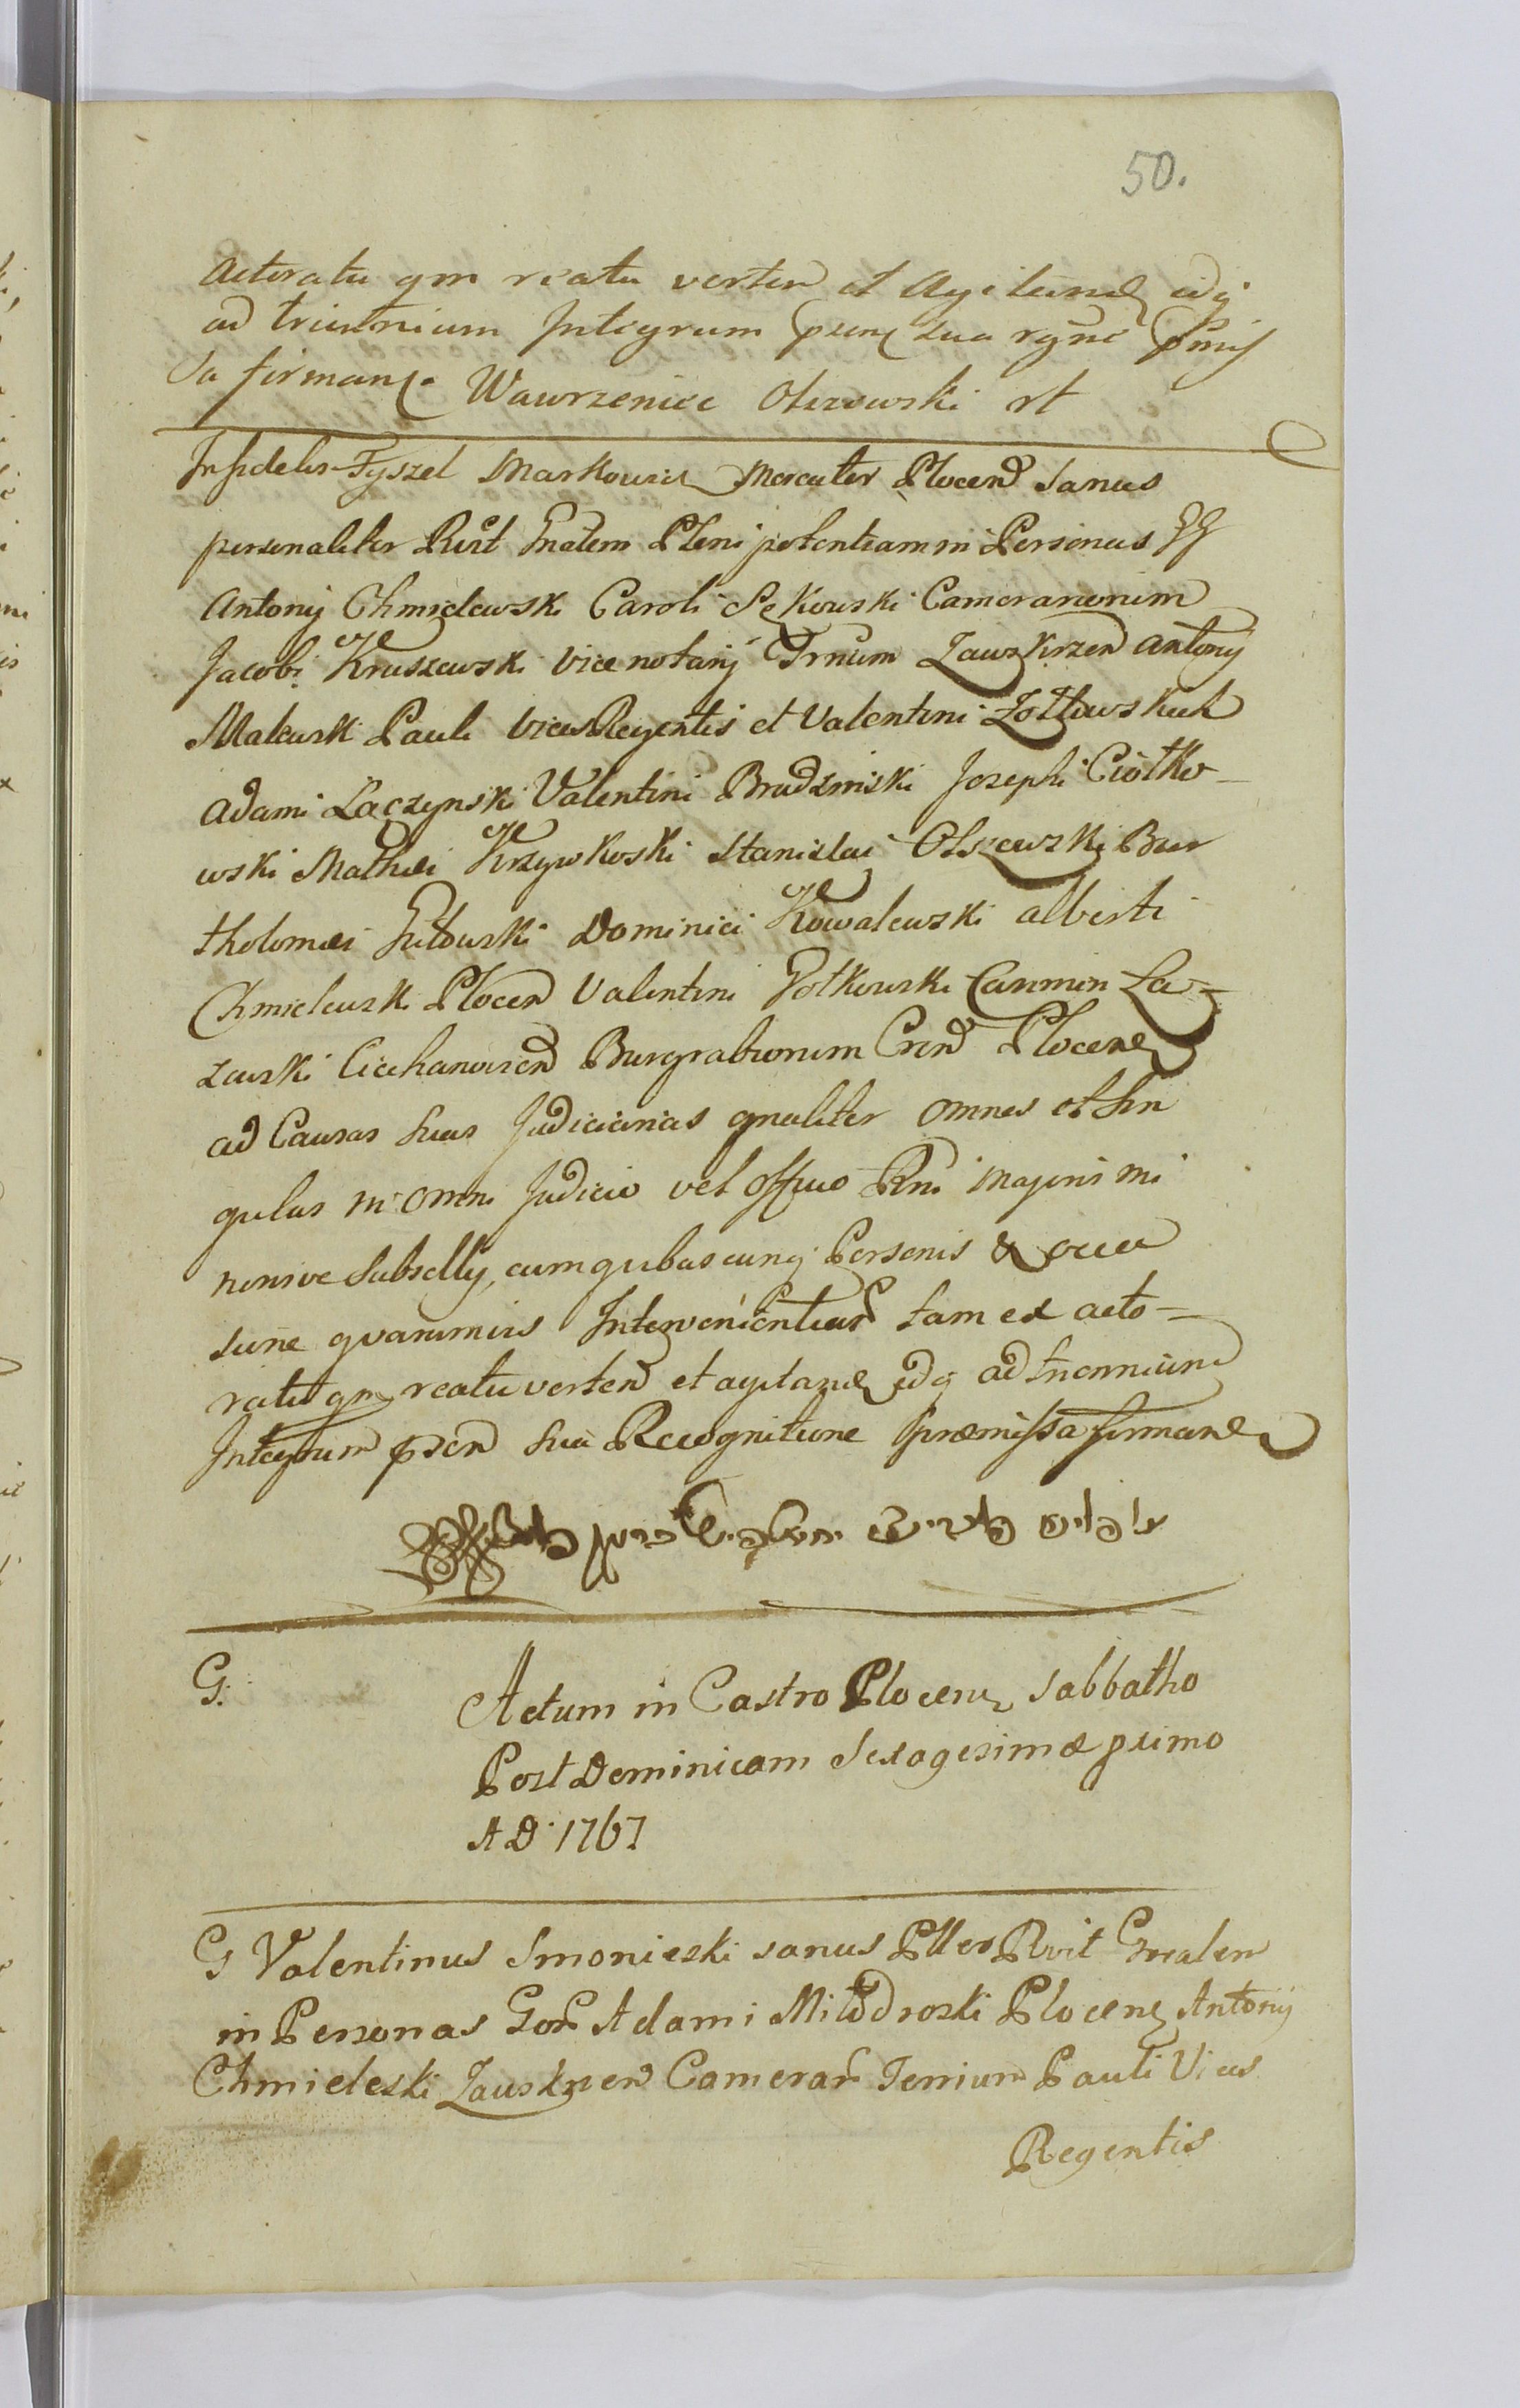 50.
Actoratu qm reatu verten et Agitand idq
ad triennium Integrum psens sua rgne pmis
sa firmans. Wawrzeniec Olszewski rt
Infidelis Fyszel Markowicz Mercator Plocen Sanus
personaliter Rvit Gnalem Plenipotentiam in Personas GG
Antonij Chmielewski Caroli Sękowski Camerariorum
Jacobi Kruszewski Vice notarij Trrum Zawskrzen Antonij
Malewski Pauli Vices Regentis et Valentini Żółtowskich
Adami Łączynski Valentini Brudzinski Josephi Ciółko-
wski Mathei Krzywkoski Stanislai Olszewski Bar
tholomei Dominici Kowalewski Alberti
Chmielewski Plocen Valentini Gotkowski Casimiri La-
zewski Ciechanovien Burgrabiorum Cren Plocens
ad Causas suas Judiciarias gnaliter omnes et sin
gulas in omni Judicio vel Officio Rni Majoris mi
norisve Subsellij, cum quibuscunq Personis & occa
sione quavumvis Intervenientium tam ex acto-
ratu qm reatu verten et agitand idq ad triennium
Integrum psen sua Recognitione praemissa firmand
G. Actum in Castro Plocens Sabbatho
Post Dominicam Sexagesimae primo
A D 1767
G Valentinus Smonieski sanus Plter Rvit Gnralem
in Personas Gor Adami Miłodroski Plocens Antonij
Chmieleski Zauskrzen Camerar Terrium Pauli Vices
Regentis